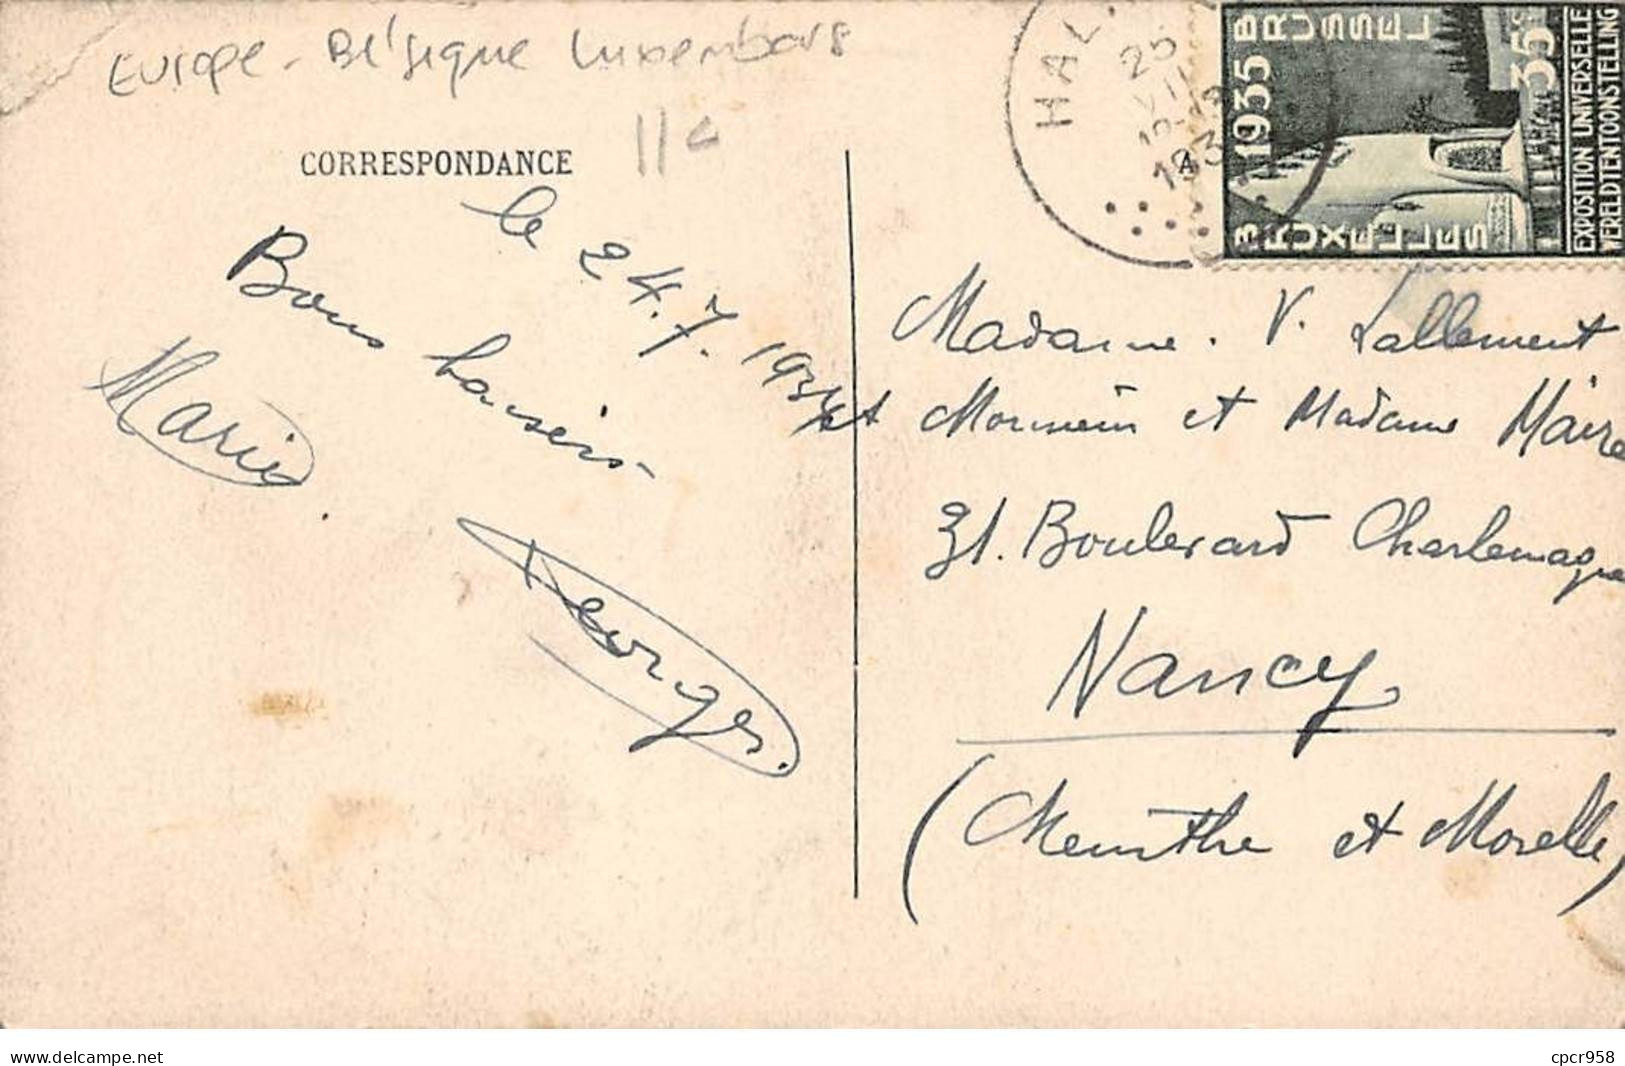 Europe - Bélgique Luxembourg
11€
CORRESPONDANCE
le 24.7.1934
Bons baisers
Marie
Georges.
HAL
25
VII
193
BRUSSEL
1935
BRUXELLES
35c
EXPOSITION UNIVERSELLE
WERELDTENTOONSTELLING
A
Madame. V. Lallement
et Monsieur et Madame Maire
31. Boulevard Charlemagne
Nancy
(Meurthe et Moselle)
www.delcampe.net
cpcr958